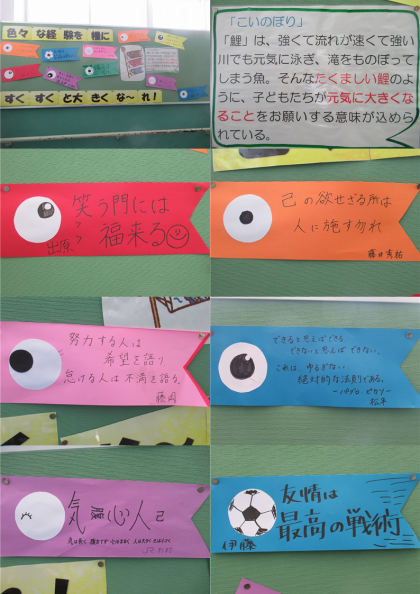 色々な経験を糧に
すくすくと大きくな〜れ!
「こいのぼり」
「鯉」は、強くて流れが速くて強い
川でも元気に泳ぎ、滝をものぼって
しまう魚。そんなたくましい鯉のよ
うに、子どもたちが元気に大きくな
ることをお願いする意味が込めら
れている。
笑う門には
福来る
出原
己の欲せざる所は
人に施す勿れ
努力する人は
希望を語り
怠ける人は不満を語る。
藤岡
できると思えばできる
できないと思えばできない。
これは、ゆるぎない
絶対的な法則である。
ーパブロ・ピカソー
松本
気腹心人己
友情は
最高の戦術
伊藤